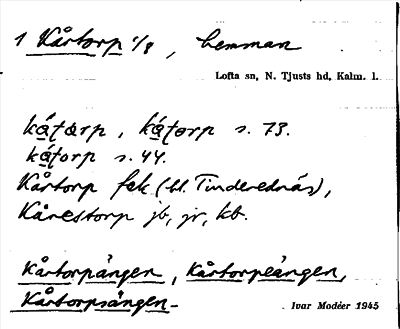 1 Kårtorp 1/8, hemman
Lofta sn, N. Tjusts hd, Kalm. l.
kátarp, kátorp s. 73.
kátorp s. 44.
Kårtorp fsk (bl. Tinderednäs),
Kårestorp jb, jr, kb.
Kårtorpängen, Kårtorpeängen,
Kårtorpsängen-
Ivar Modéer 1945